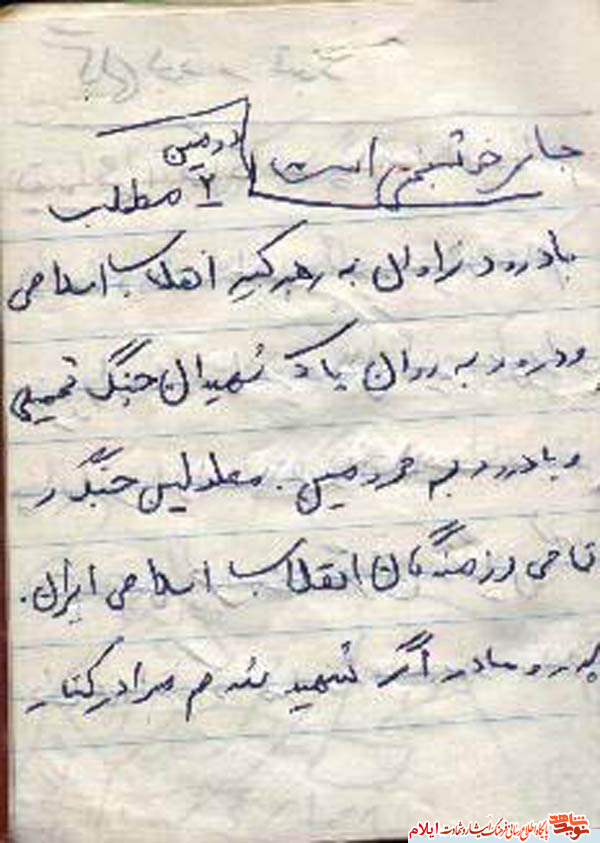 جای خوشبختی است
دومین
۲ مطلب
با درود فراوان به رهبر کبیر انقلاب اسلامی
و درود به روان پاک شهیدان جنگ تحمیلی
و با درود بر مجروحین. معلولین جنگ و
تمامی رزمندگان انقلاب اسلامی ایران.
پدر و مادر اگر شهید شدم مرا در کنار
نوید شاهد پایگاه اطلاع رسانی فرهنگ ایثار و شهادت ایلام